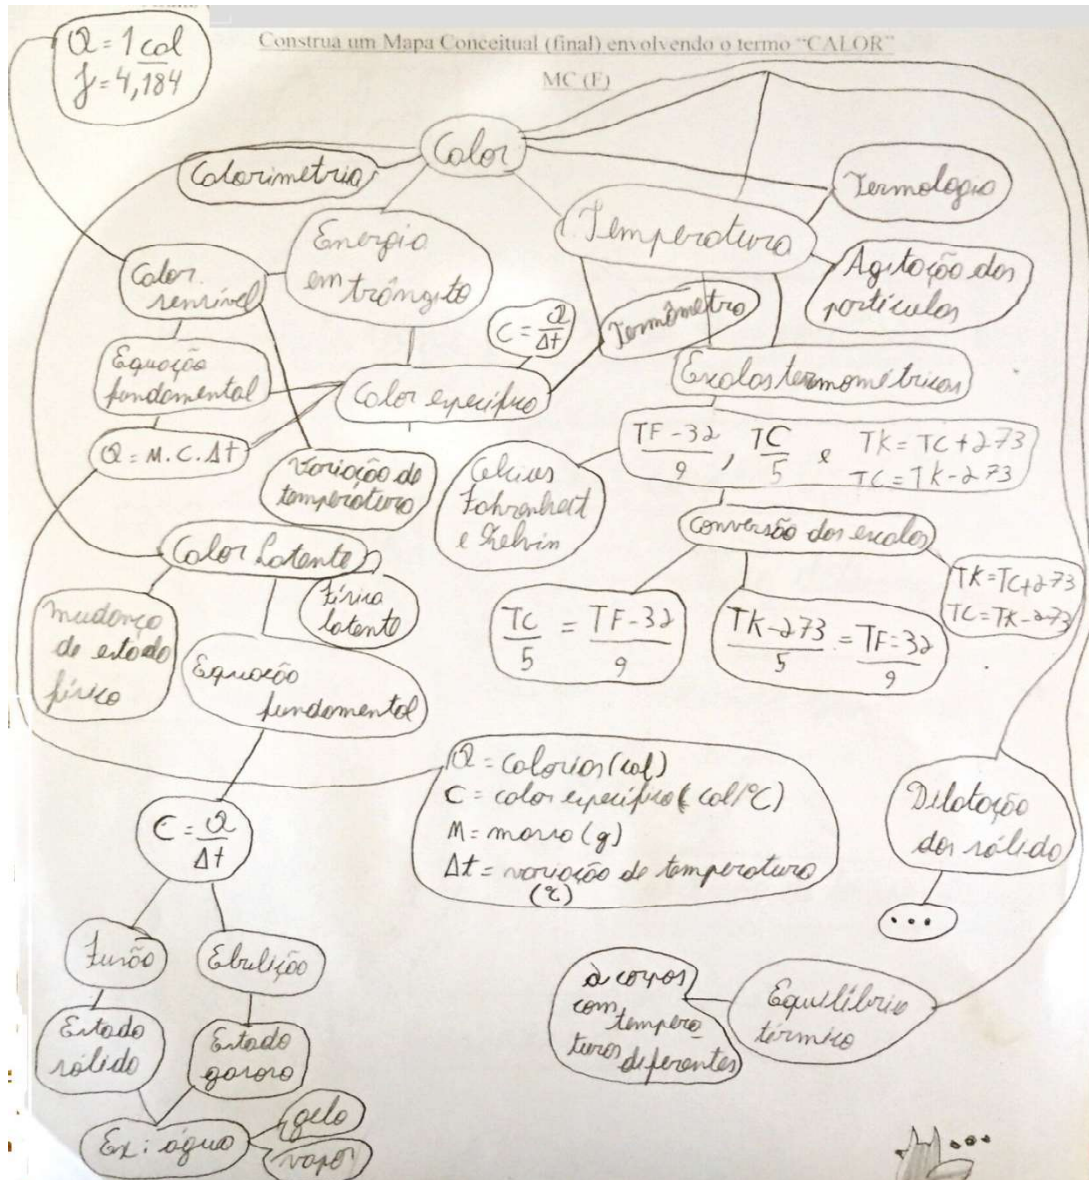 Q = 1 cal
J = 4,184
Construa um Mapa Conceitual (final) envolvendo o termo “CALOR”
MC (F)
Calor
Calorimetria
Termologia
Energia
em trânsito
Temperatura
Agitação das
partículas
Calor
sensível
C = Q/Δt
Termômetro
Equação
fundamental
Calor específico
Escalas termométricas
Q = M. C. Δt
Variação de
temperatura
Celcius
Fahrenheit
e Kelvin
TF - 32/9 , TC/5 e TK = TC + 273
TC = TK - 273
Conversão das escalas
Calor Latente
mudança
de estado
físico
latente
Equação
fundamental
TC/5 = TF - 32/9
TK - 273/5 = TF - 32/9
TK = TC + 273
TC = TK - 273
Q = calorias (cal)
C = calor específico (cal/°C)
M = massa (g)
Δt = variação de temperatura
(°C)
Dilatação
dos sólido
...
C = Q/Δt
Fusão
Ebulição
Estado
sólido
Estado
gasoso
Ex: água
gelo
vapor
à corpos
com
tempera
turas
diferentes
Equilíbrio
térmico